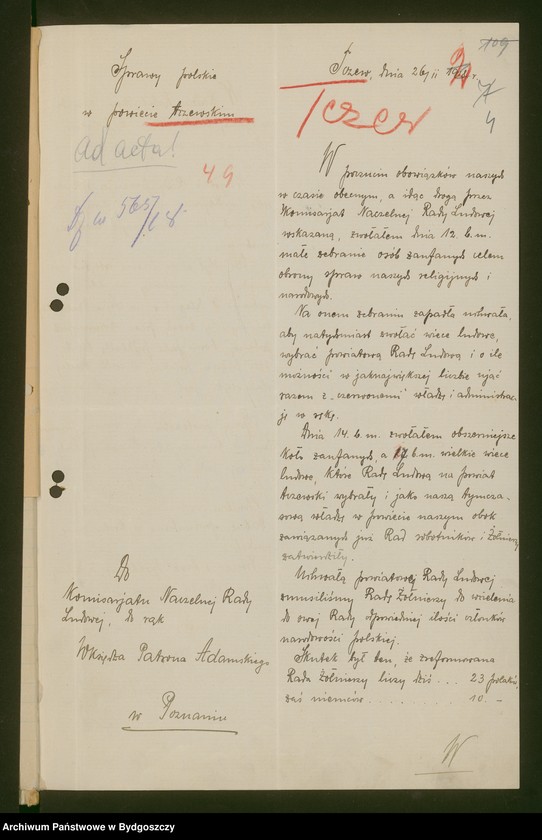 109
Sprawy polskie
w powiecie tczewskim
ad acta!
49
565/18
Do
Komisarjatu Naczelnej Rady
Ludowej, do rąk
WKsiędza Patrona Adamskiego
w Poznaniu
Tczew, dnia 26/II
Tczew
4
W poczuciu obowiązków naszych
w czasie obecnym, a idąc drogą przez
Komisarjat Naczelnej Rady Ludowej
wskazaną, zwołałem dnia 12. b.m.
małe zebranie osób zaufanych celem
obrony spraw naszych religijnych i
narodowych.
Na onem zebraniu zapadła uchwała,
aby natychmiast zwołać wiece ludowe,
wybrać powiatową Radę Ludową i o ile
możności w jaknajwiększej liczbie ująć
razem z "czerwonemi" władzę i administrac-
je w ręke.
Dnia 14. b.m. zwołałem obszerniejsze
koło zaufanych, a 17 b.m. wielkie wiece
ludowe, które Radę Ludową na powiat
tczewski wybrały i jako naszą tymcza-
sową władzę w powiecie naszym obok
zawiązanych już Rad robotników i Żołnierzy
zatwierdziły.
Uchwałą powiatowej Rady Ludowej
zmusiliśmy Radę Żołnierzy do wcielenia
do swej Rady odpowiedniej ilości członków
narodowości polskiej.
Skutek był ten, że zreformowana
Rada Żołnierzy liczy dziś . . . 23 polaków,
zaś niemców . . . . . . . . 10. –
W
Archiwum Państwowe w Bydgoszczy